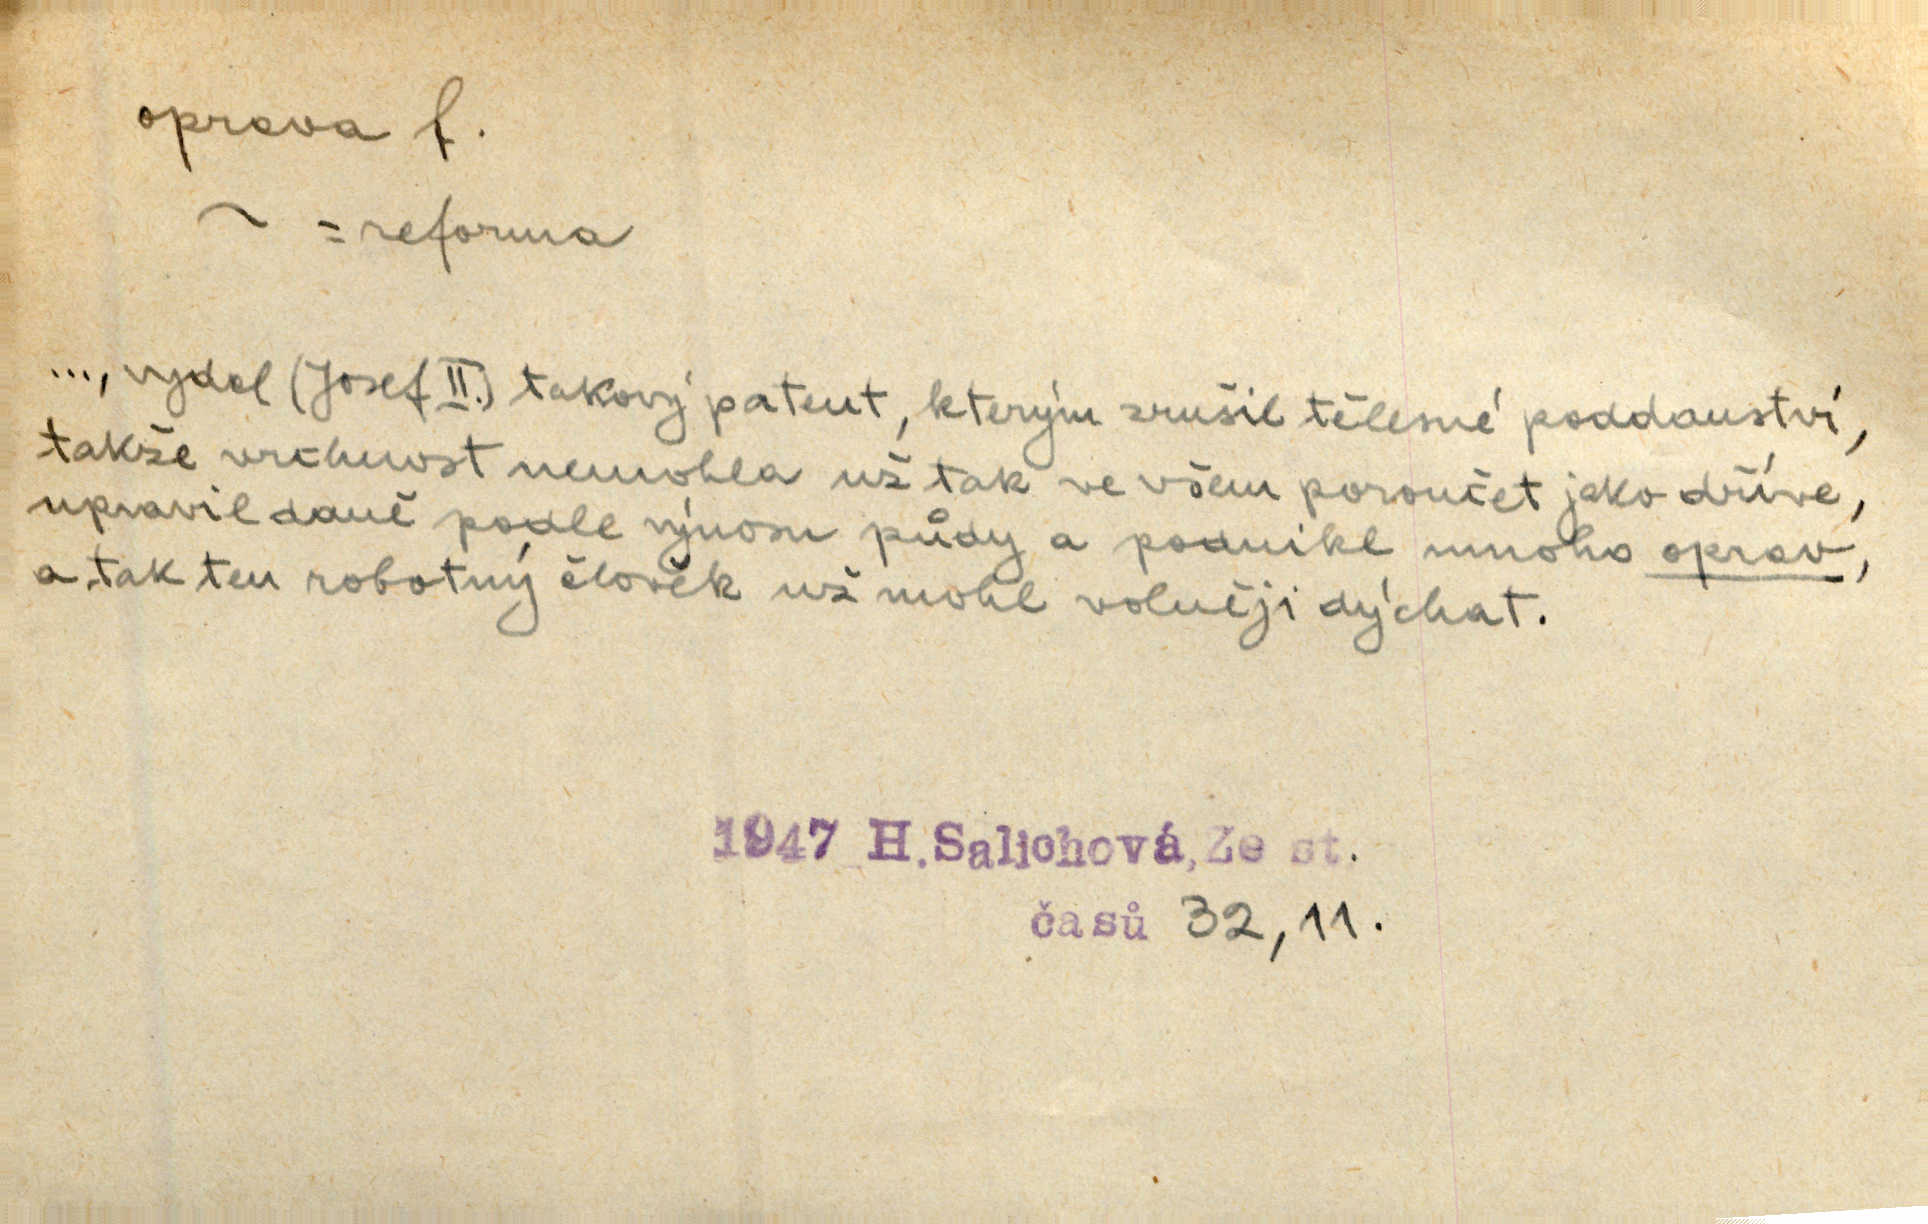 oprava f.
~ = reforma
..., vydal (Josef II.) takový patent, kterým zrušil tělesné poddanství,
takže vrchnost nemohla už tak ve všem poroučet jako dříve,
upravil daně podle výnosu půdy a podnikl mnoho oprav,
a tak ten robotný člověk už mohl volněji dýchat.
1947 H.Salichová, Ze st.
časů 32, 11.